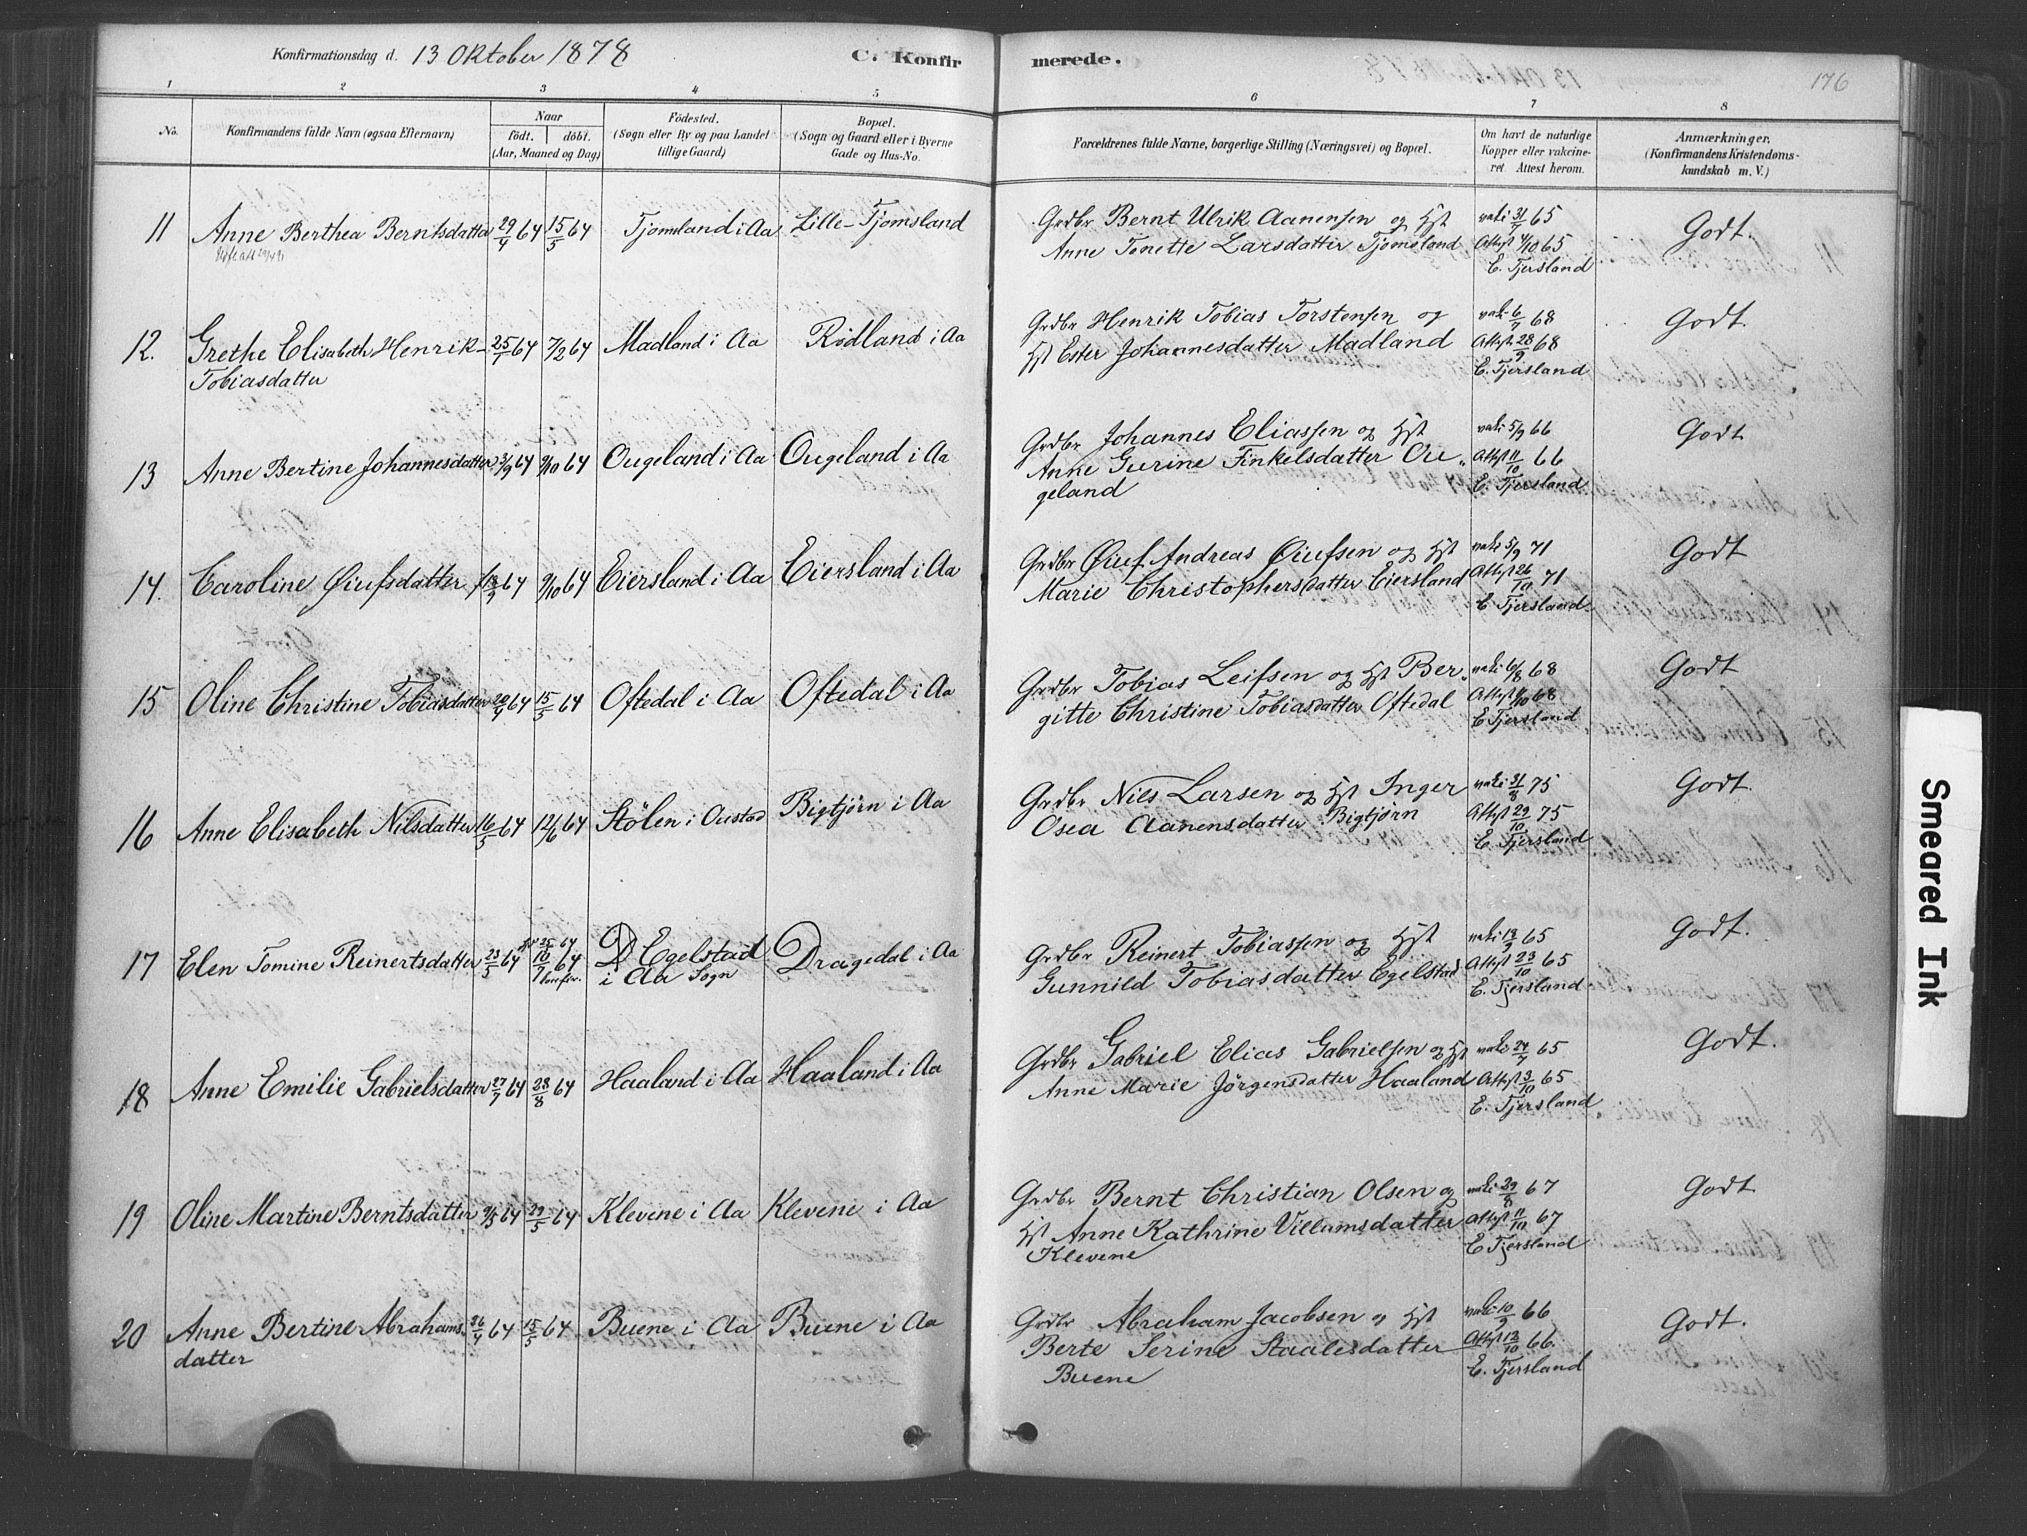 Konfirmationsdag d. 13 Oktober 1878 C. Konfirmerede. 176
1 2 3 4 5 6 7 8
No. Konfirmandens fulde Navn (ogsaa Efternavn) Naar født. døbt. (Aar, Maaned og Dag) Fødested. (Sogn eller By og paa Landet tillige Gaard) Bopæl. (Sogn og Gaard eller i Byerne Gade og Hus-No. Forældrenes fulde Navne, borgerlige Stilling (Næringsvei) og Bopæl. Om havt de naturlige Kopper eller vakcineret Attest herom. Anmærkninger. (Konfirmandens Kristendomskundskab m. V.)
11 Anne Berthea Berntsdatter 29/4 64 15/5 64 Tjomsland i Aa Lille-Tjomsland Grdbr Bernt Ulrik Aanensen og Hst vaki 31/7 65 Godt.
Anne Tonette Larsdatter Tjomsland Attest 4/10 65
E. Tjersland
12. Grethe Elisabeth Henrik- 25/1 64 7/2 64 Madland i Aa Rødland i Aa Grdbr Henrik Tobias Torstensen og vaki 6/7 68 Godt.
Tobiasdatter Hst Ester Johannesdatter Madland Attest 28/9 68
E. Tjersland
13 Anne Bertine Johannesdatter 3/9 64 9/10 64 Ougeland i Aa Ougeland i Aa Grdbr Johannes Eliassen og Hst vaki 5/9 66 Godt
Anne Gurine Finkelsdatter Ou„ Attest 11/10 66
geland E. Tjersland
14. Caroline Øiufsdatter 13/9 64 9/10 64 Eiersland i Aa Eiersland i Aa Grdbr Øiuf Andreas Øiufsen og Hst vaki 5/9 71 Godt
Marie Christophersdatter Eiersland Attest 26/10 71
E Tjersland
15 Oline Christine Tobiasdatter 20/4 64 15/5 64 Oftedal i Aa Oftedal i Aa Grdbr Tobias Leifsen og Hst Ber„ vaki 6/8 68 Godt
gitte Christine Tobiasdatter Oftedal Attest 11/10 68
E Tjersland
16 Anne Elisabeth Nilsdatter 16/5 64 12/6 64 Stølen i Oustad Bigtjørn i Aa Grdbr Nils Larsen og Hst Inger vaki 31/8 75 Godt.
Osea Aanensdatter Bigtjørn Attest 29/10 75
E. Tjersland
17 Elen Tomine Reinertsdatter 23/5 64 25/10 64 Egelstad Dragedal i Aa Grdbr Reinert Tobiassen og Hst vaki 13/9 65 Godt.
i Aa Sogn Gunnild Tobiasdatter Egelstad Attest 23/10 65
E. Tjersland
18 Anne Emilie Gabrielsdatter 27/7 64 28/8 64 Haaland i Aa Haaland i Aa Grdbr Gabriel Elias Gabrielsen og Hst vaki 24/7 65 Godt.
Anne Marie Jørgensdatter Haaland Attest 3/10 65
E. Tjersland
19 Oline Martine Berntsdatter 9/5 64 29/5 64 Klevene i Aa Klevene i Aa Grdbr Bernt Christian Olsen og vaki 29/8 67 Godt
Hst Anne Kathrine Villumsdatter Attest 11/10 67
Klevene E Tjersland
20 Anne Bertine Abrahams. 26/4 64 15/5 64 Buene i Aa Buene i Aa Grdbr Abraham Jacobsen og Hst vaki 10/9 66 Godt.
datter Berte Serine Staalesdatter Attest 13/10 66.
Buene E. Tjersland
Smeared Ink